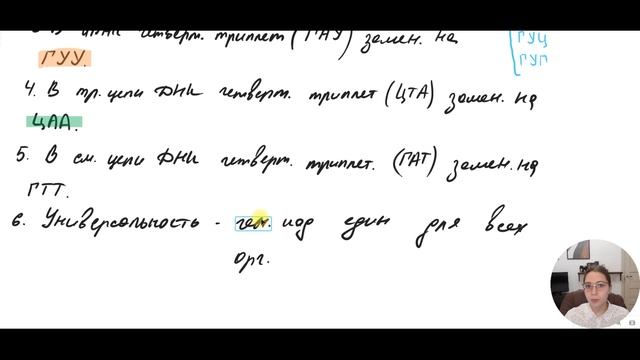 3. В иРНК четверт. триплет (ГАУ) замен. на
ГУУ.
ГУЦ
ГУГ
4. В тр. цепи ДНК четверт. триплет (ЦТА) замен. на
ЦАА.
5. В см. цепи ДНК четверт. триплет. (ГАТ) замен. на
ГТТ.
6. Универсальность - ген. код един для всех
орг.